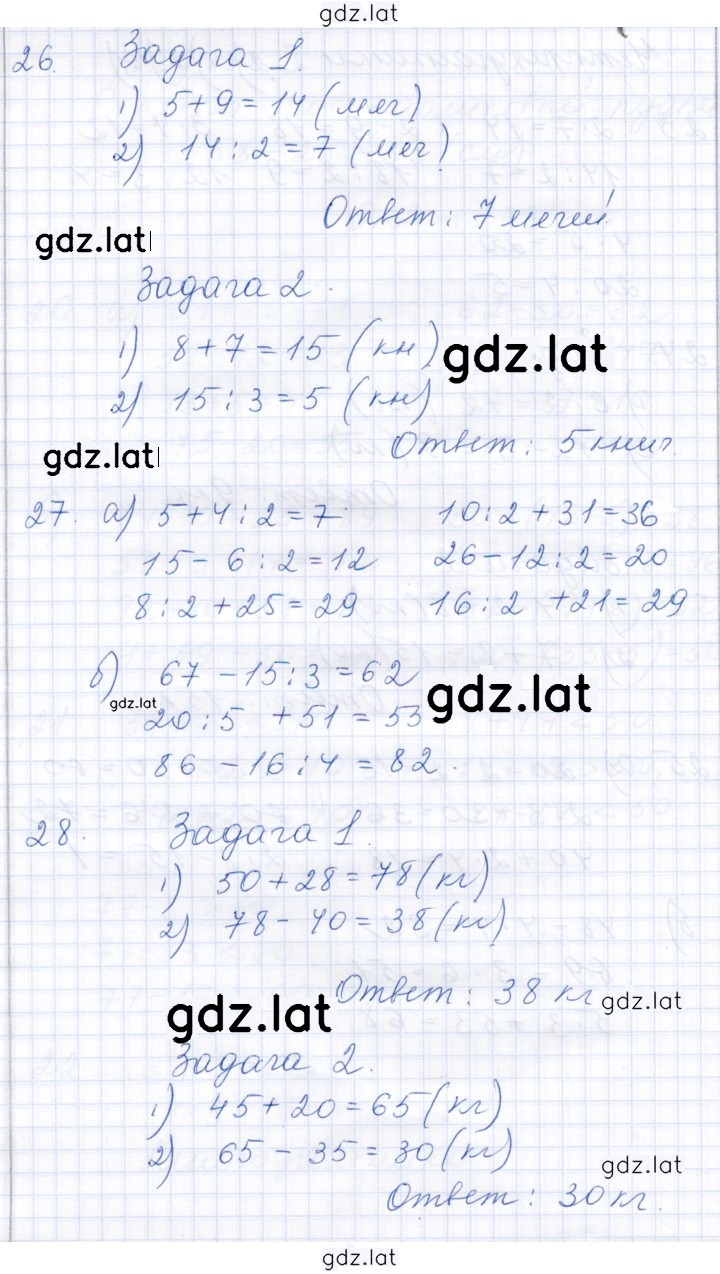 gdz.lat
26. Задача 1.
1) 5+9=14 (мяч)
2) 14:2=7 (мяч)
Ответ: 7 мячей
gdz.lat
Задача 2.
1) 8+7=15 (кн)
gdz.lat
2) 15:3=5 (кн)
Ответ: 5 книг.
gdz.lat
27. а) 5+4:2=7 10:2+31=36
15-6:2=12 26-12:2=20
8:2+25=29 16:2+21=29
б) 67-15:3=62
gdz.lat
gdz.lat
20:5+51=53
86-16:4=82.
28. Задача 1.
1) 50+28=78 (кг)
2) 78-40=38 (кг)
Ответ: 38 кг
gdz.lat
gdz.lat
Задача 2.
1) 45+20=65 (кг)
2) 65-35=30 (кг)
gdz.lat
Ответ: 30 кг.
gdz.lat